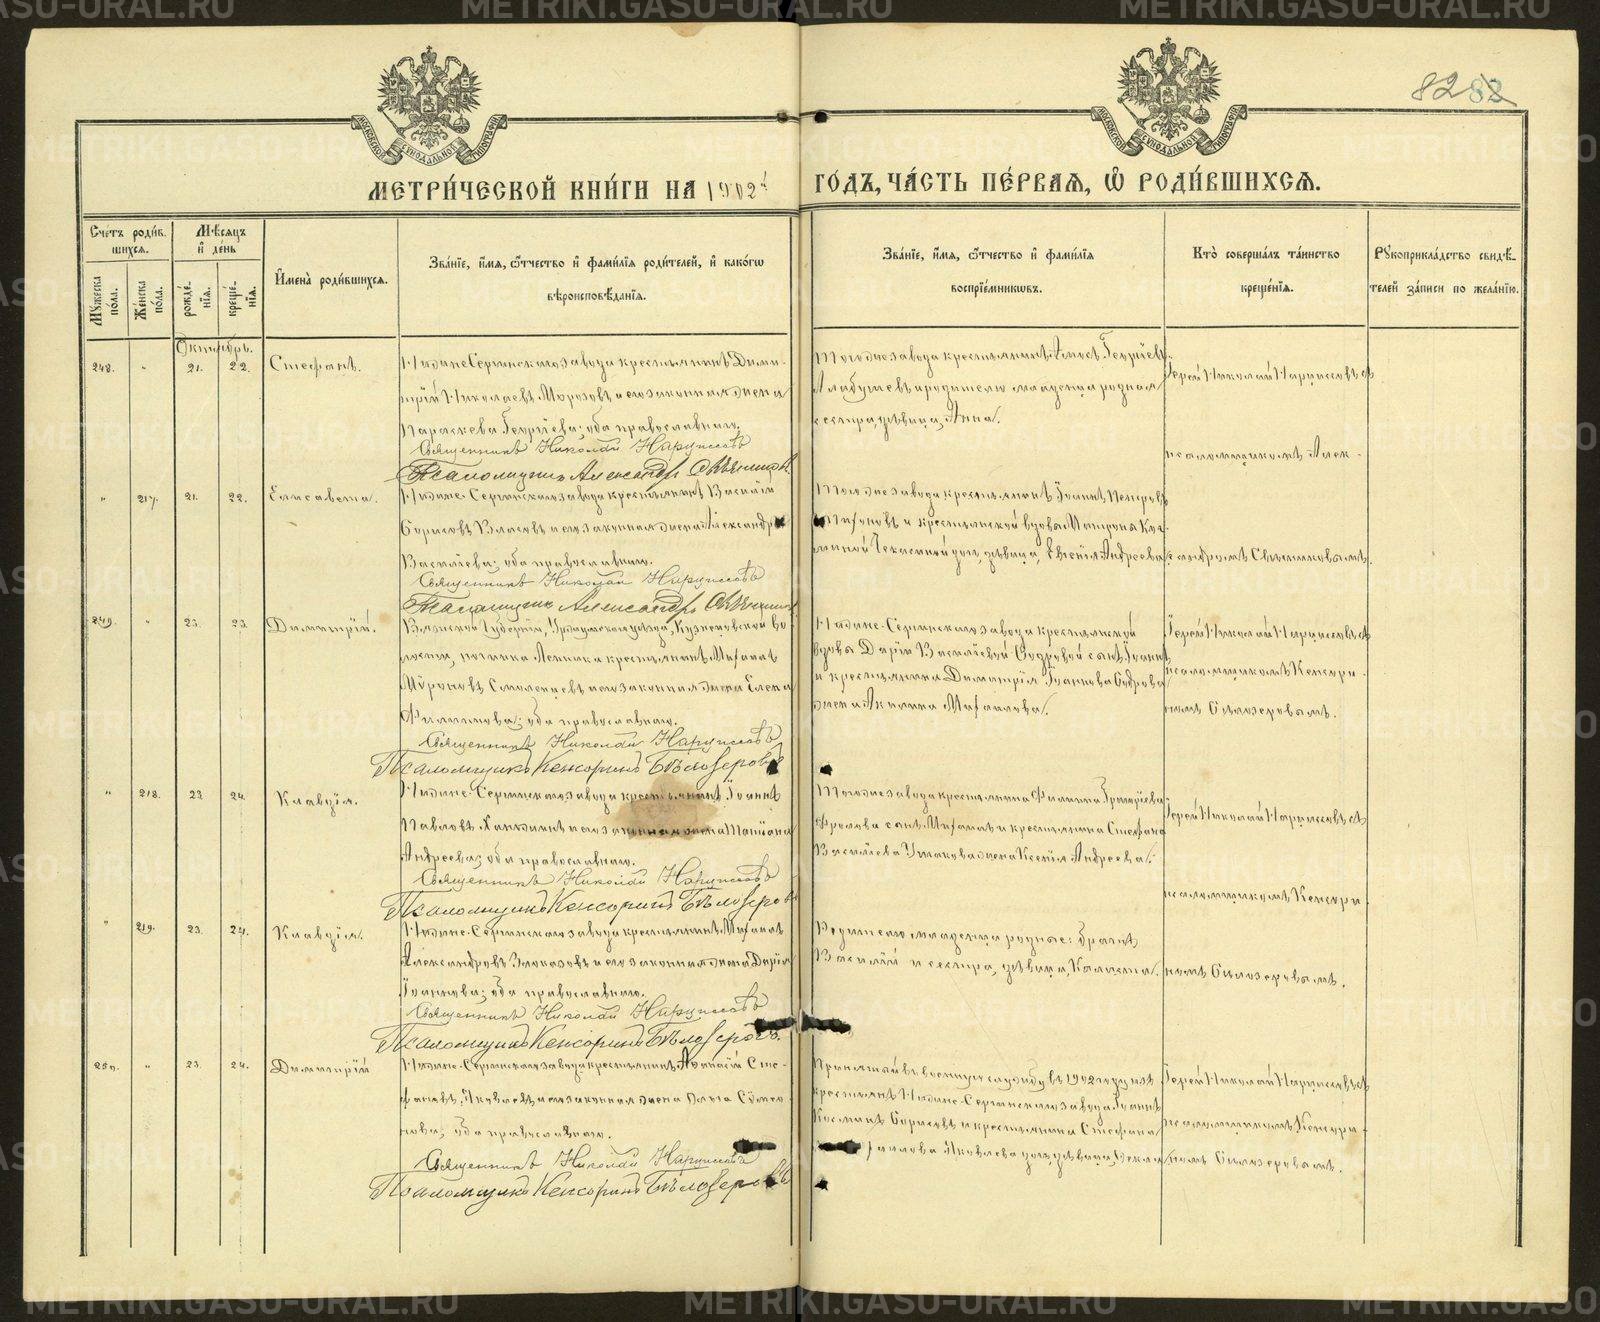 82
МЕТРИ́ЧЕСКОЙ КНИ́ГИ НА 1902 ГО́ДЪ, ЧА́СТЬ ПЕ́РВАЯ, Ѡ РОДИ́ВШИХСЯ.
Сче́тъ роди́вшихся.
Му́жеска по́ла.
Же́нска по́ла.
Мѣ́сяцъ и҆ де́нь
рожде́нїя.
креще́нїя.
И҆мена̀ роди́вшихся.
Зва́нїе, и҆́мя, ѻ҆́тчество и҆ фами́лїя роди́телей, и҆ како́гѡ вѣроисповѣ́данїя.
Зва́нїе, и҆́мя, ѻ҆́тчество и҆ фами́лїя воспрїе́мниковъ.
Кто̀ соверша́лъ та́инство креще́нїя.
Рꙋкоприкла́дство свидѣ́телей за́писи по жела́нїю.
Октябрь.
248. " 21. 22. Стефанъ.
Нижне-Сергинскаго завода крестьянинъ Дими-
трій Николаевъ Морозовъ и его законная жена
Параскева Георгіева; оба православные.
Священникъ Николай Нарциссовъ
Псаломщикъ Александръ Свѣчниковъ
Тогоже завода крестьянинъ
и родителю младенца родная
сестра, дѣвица, Анна.
Іерей Николай Нарциссовъ съ
псаломщикомъ Алек-
" 217. 21. 22. Елисавета.
Нижне-Сергинскаго завода крестьянинъ Василій
Борисовъ Власовъ и его законная жена Александра
Васильева; оба православные.
Священникъ Николай Нарциссовъ
Псаломщикъ Александръ Свѣчниковъ
Тогоже завода крестьянинъ Іоаннъ Петровъ
и крестьянской вдовы Матроны
дочь, дѣвица, Евгенія Андреева.
сандромъ Свѣчниковымъ.
249. " 23. 23. Димитрій.
Вятской губерніи, Уржумскаго уѣзда, Кузнецовской во-
лости, починка крестьянинъ Михаилъ
Мѵроновъ Смоленцевъ и его законная жена Елена
Филиппова; оба православные.
Священникъ Николай Нарциссовъ
Псаломщикъ Кенсоринъ Бѣлозеровъ
Нижне-Сергинскаго завода крестьянской
вдовы Даріи Васильевой сынъ Іоаннъ
и крестьянина Димитрія Іоаннова
жена Акилина Михаилова.
Іерей Николай Нарциссовъ съ
псаломщикомъ Кенсори-
номъ Бѣлозеровымъ.
" 218. 23. 24. Клавдія.
Нижне-Сергинскаго завода крестьянинъ Іоаннъ
Павловъ и его законная жена Татіана
Андреева; оба православные.
Священникъ Николай Нарциссовъ
Псаломщикъ Кенсоринъ Бѣлозеровъ
Тогоже завода крестьянина Филиппа Григоріева
Фролова сынъ Михаилъ и крестьянина Стефана
Васильева Ушакова жена Ксенія Андреева.
Іерей Николай Нарциссовъ съ
псаломщикомъ Кенсори-
" 219. 23. 24. Клавдія.
Нижне-Сергинскаго завода крестьянинъ Михаилъ
Александровъ и его законная жена Дарія
Іоаннова; оба православные.
Священникъ Николай Нарциссовъ
Псаломщикъ Кенсоринъ Бѣлозеровъ.
Родителю младенца родные: братъ
Василій и сестра, дѣвица,
номъ Бѣлозеровымъ.
250. " 23. 24. Димитрій
Нижне-Сергинскаго завода крестьянинъ Аѳанасій Сте-
фановъ Яковлевъ и его законная жена Ольга Сѵмео-
нова; оба православные.
Священникъ Николай Нарциссовъ
Псаломщикъ Кенсоринъ Бѣлозеровъ
Принятый въ военную службу въ 1902 году изъ
крестьянъ Нижне-Сергинскаго завода Іоаннъ
Косминъ Борисовъ и крестьянина Стефана
Яковлева дочь, дѣвица, Ѳекла
Іерей Николай Нарциссовъ съ
псаломщикомъ Кенсори-
номъ Бѣлозеровымъ.
METRIKI.GASU-URAL.RU